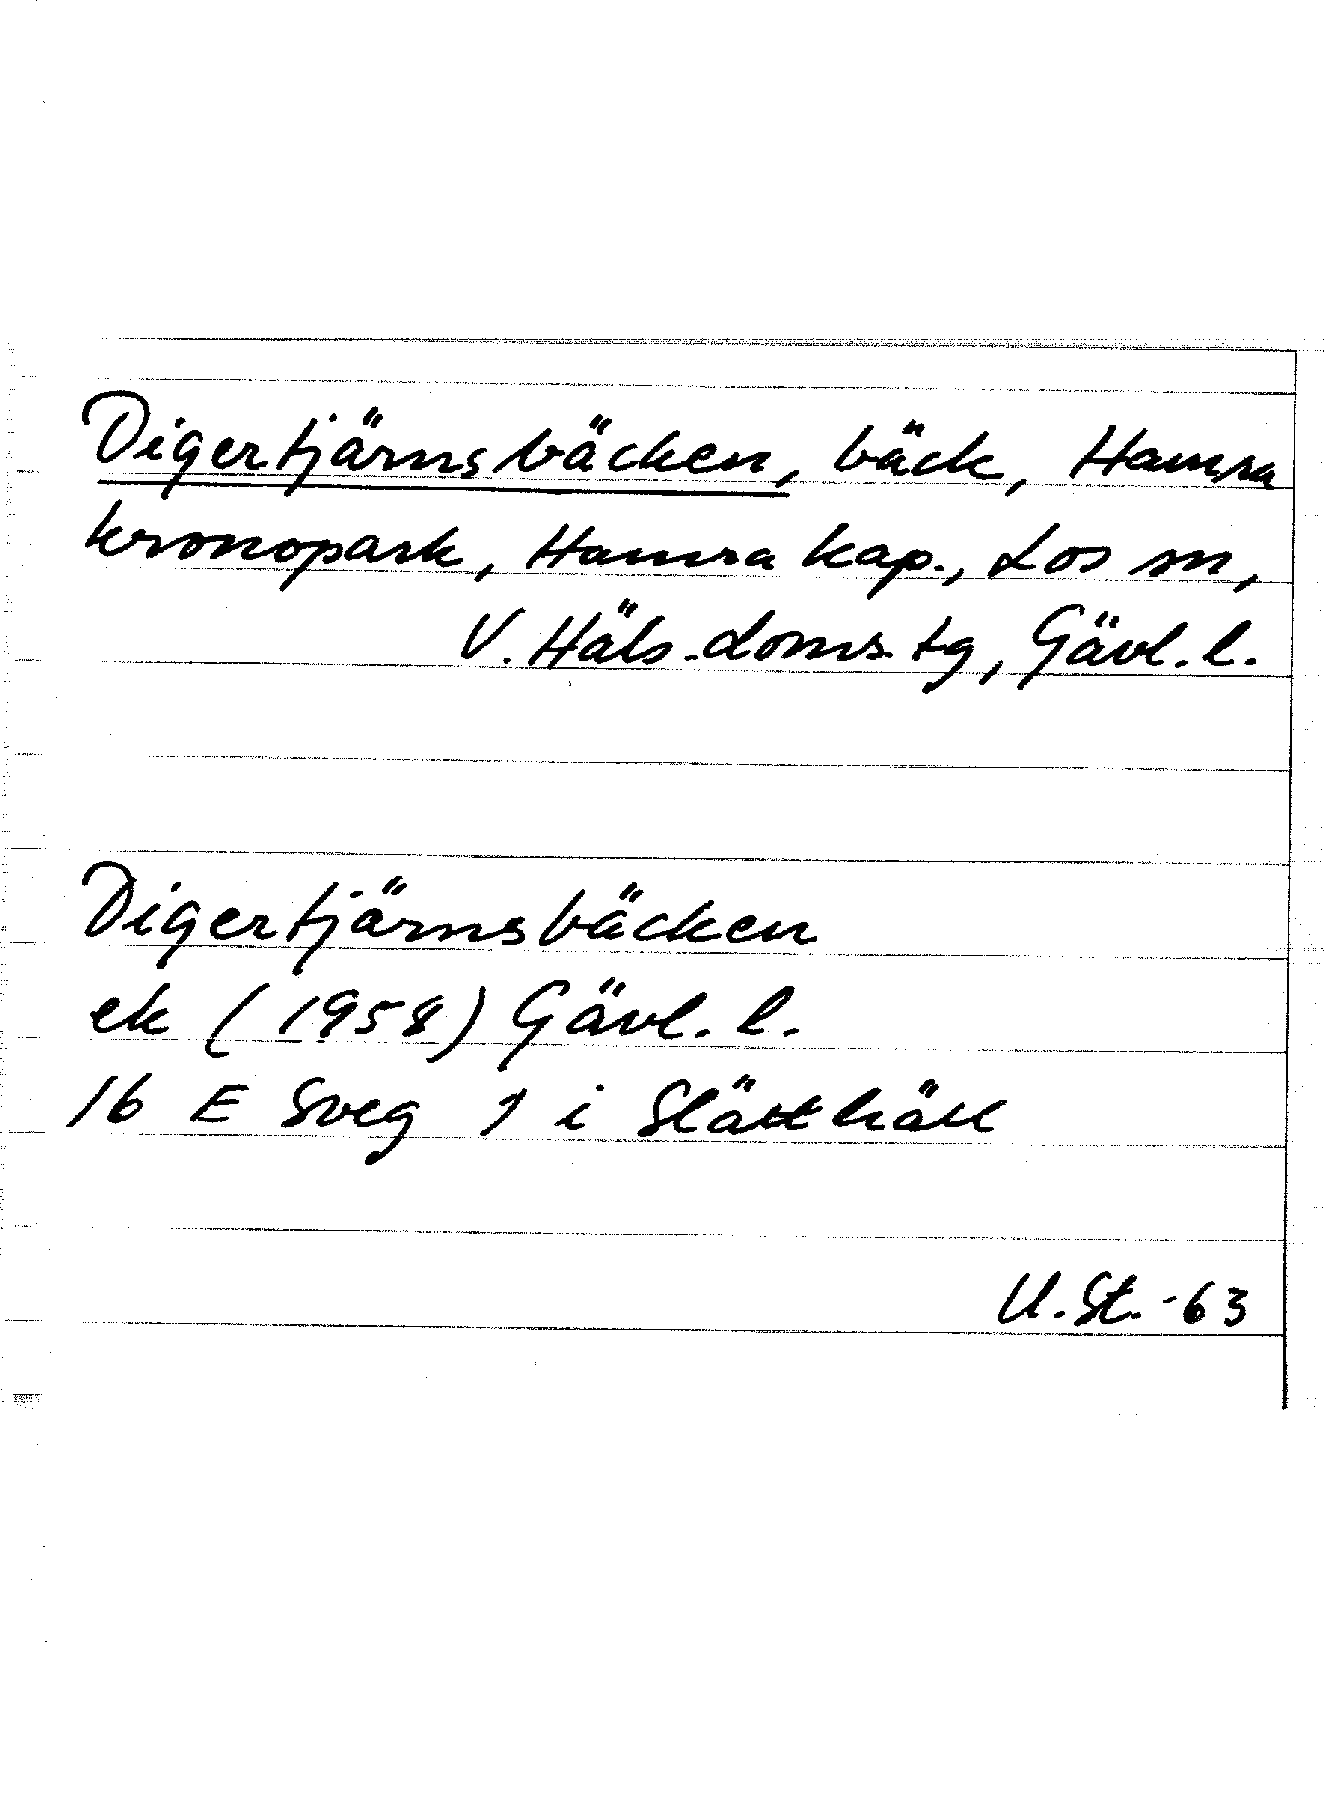 Digertjärnsbäcken, bäck, Hamra
kronopark, Hamra kap., Los sn,
V. Häls. doms. tg, Gävl. l.
Digertjärnsbäcken
ek (1958) Gävl. l.
16 E Sveg 1 i Slätthäll
U. St. -63